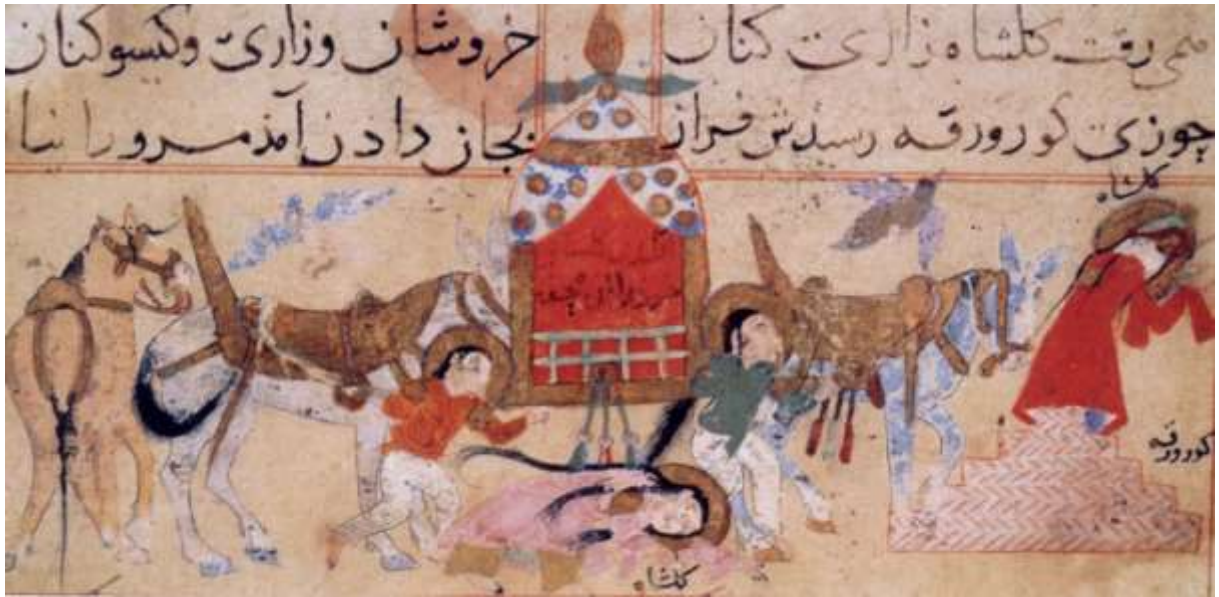 همی رفت کلشاه زاری کنان خروشان وزاری وکیسوکنان
چوزی کور ورقه رسیدش فراز بجان دادن آمذ مرورا نیا
کلشاه
کور ورقه
کلشاه